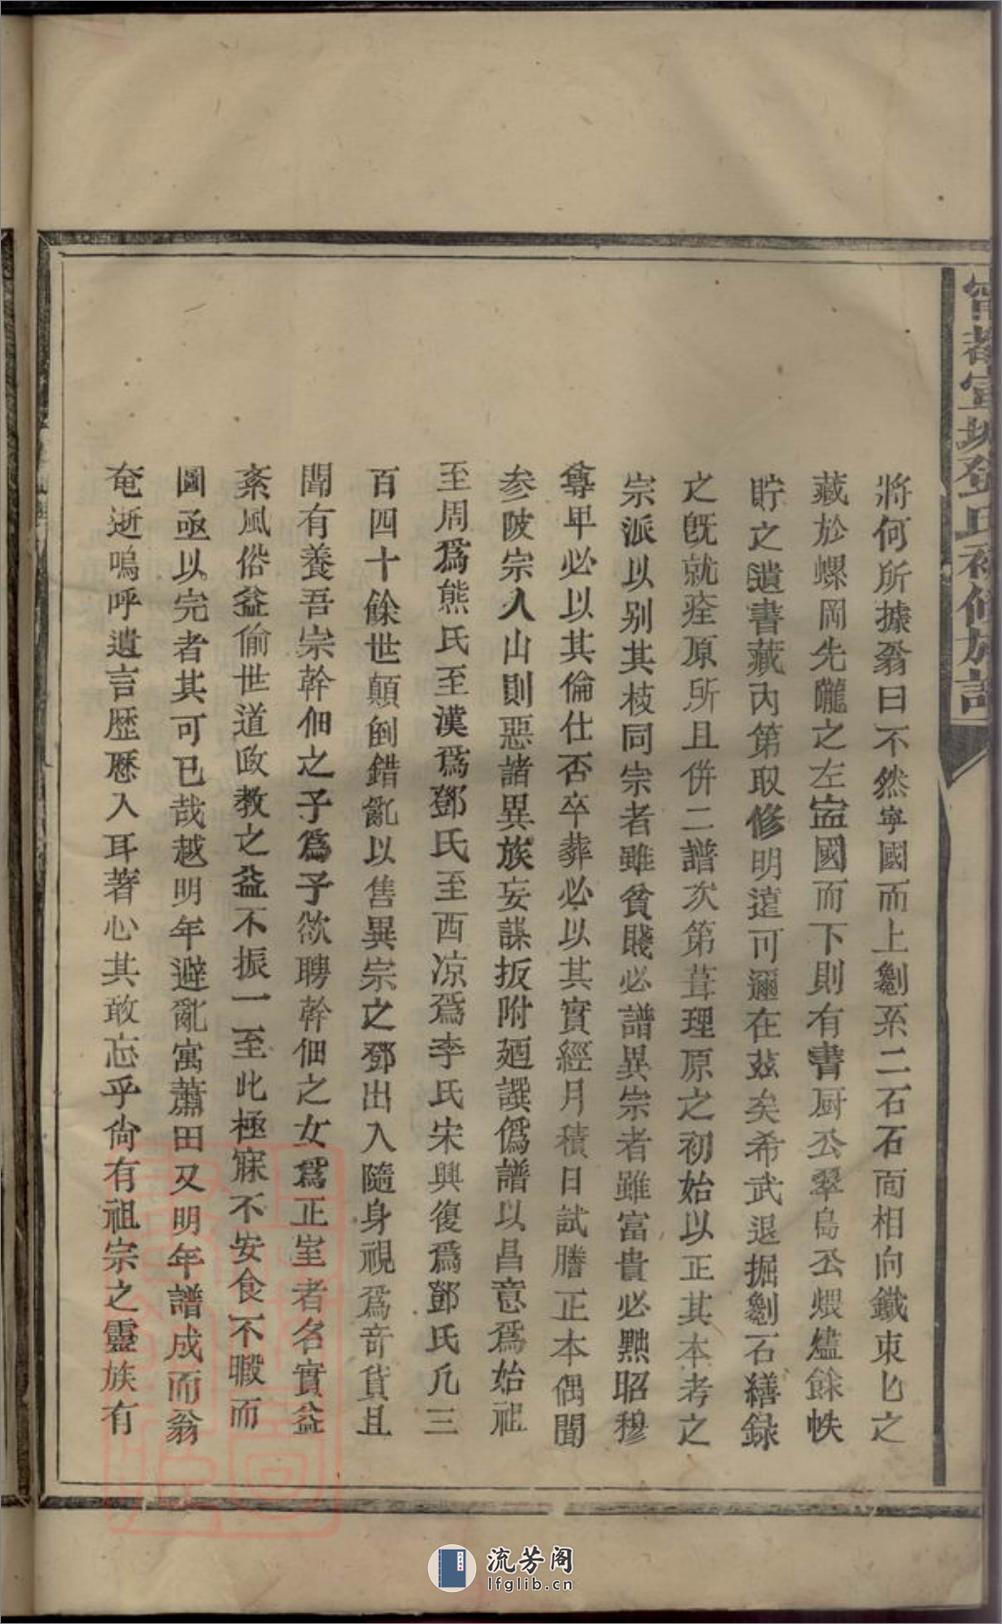 將何所據翁曰不然寧國而上劖系二石石面相向鐵束匕之
藏於螺岡先隴之左寍國而下則有書厨公翠島公煨燼餘帙
貯之遺書藏內第取修明遠可邇在玆矣希武退掘劖石繕錄
之旣就痊原所且併二譜次第葺理原之初始以正其本考之
宗派以别其枝同宗者雖貧賤必譜異宗者雖富貴必㸃昭穆
尊𤰞必以其倫仕否卒葬必以其實經月積日試謄正本偶聞
参陂宗人山則惡諸異族妄謀扳附廼譔僞譜以昌意爲始祖
至周爲熊氏至漢爲鄧氏至西凉爲李氏宋興復爲鄧氏凢三
百四十餘世顛倒錯亂以售異宗之鄧出入隨身視爲竒貨且
聞有養吾宗幹佃之子爲子欲聘幹佃之女爲正室者名實益
紊風俗益偷世道政教之益不振一至此極寐不安食不暇而
圖亟以完者其可已哉越明年避亂寓蕭田又明年譜成而翁
奄逝嗚呼遺言歷歷入耳著心其敢忘乎尙有祖宗之靈族有
流芳阁
lfglib.cn